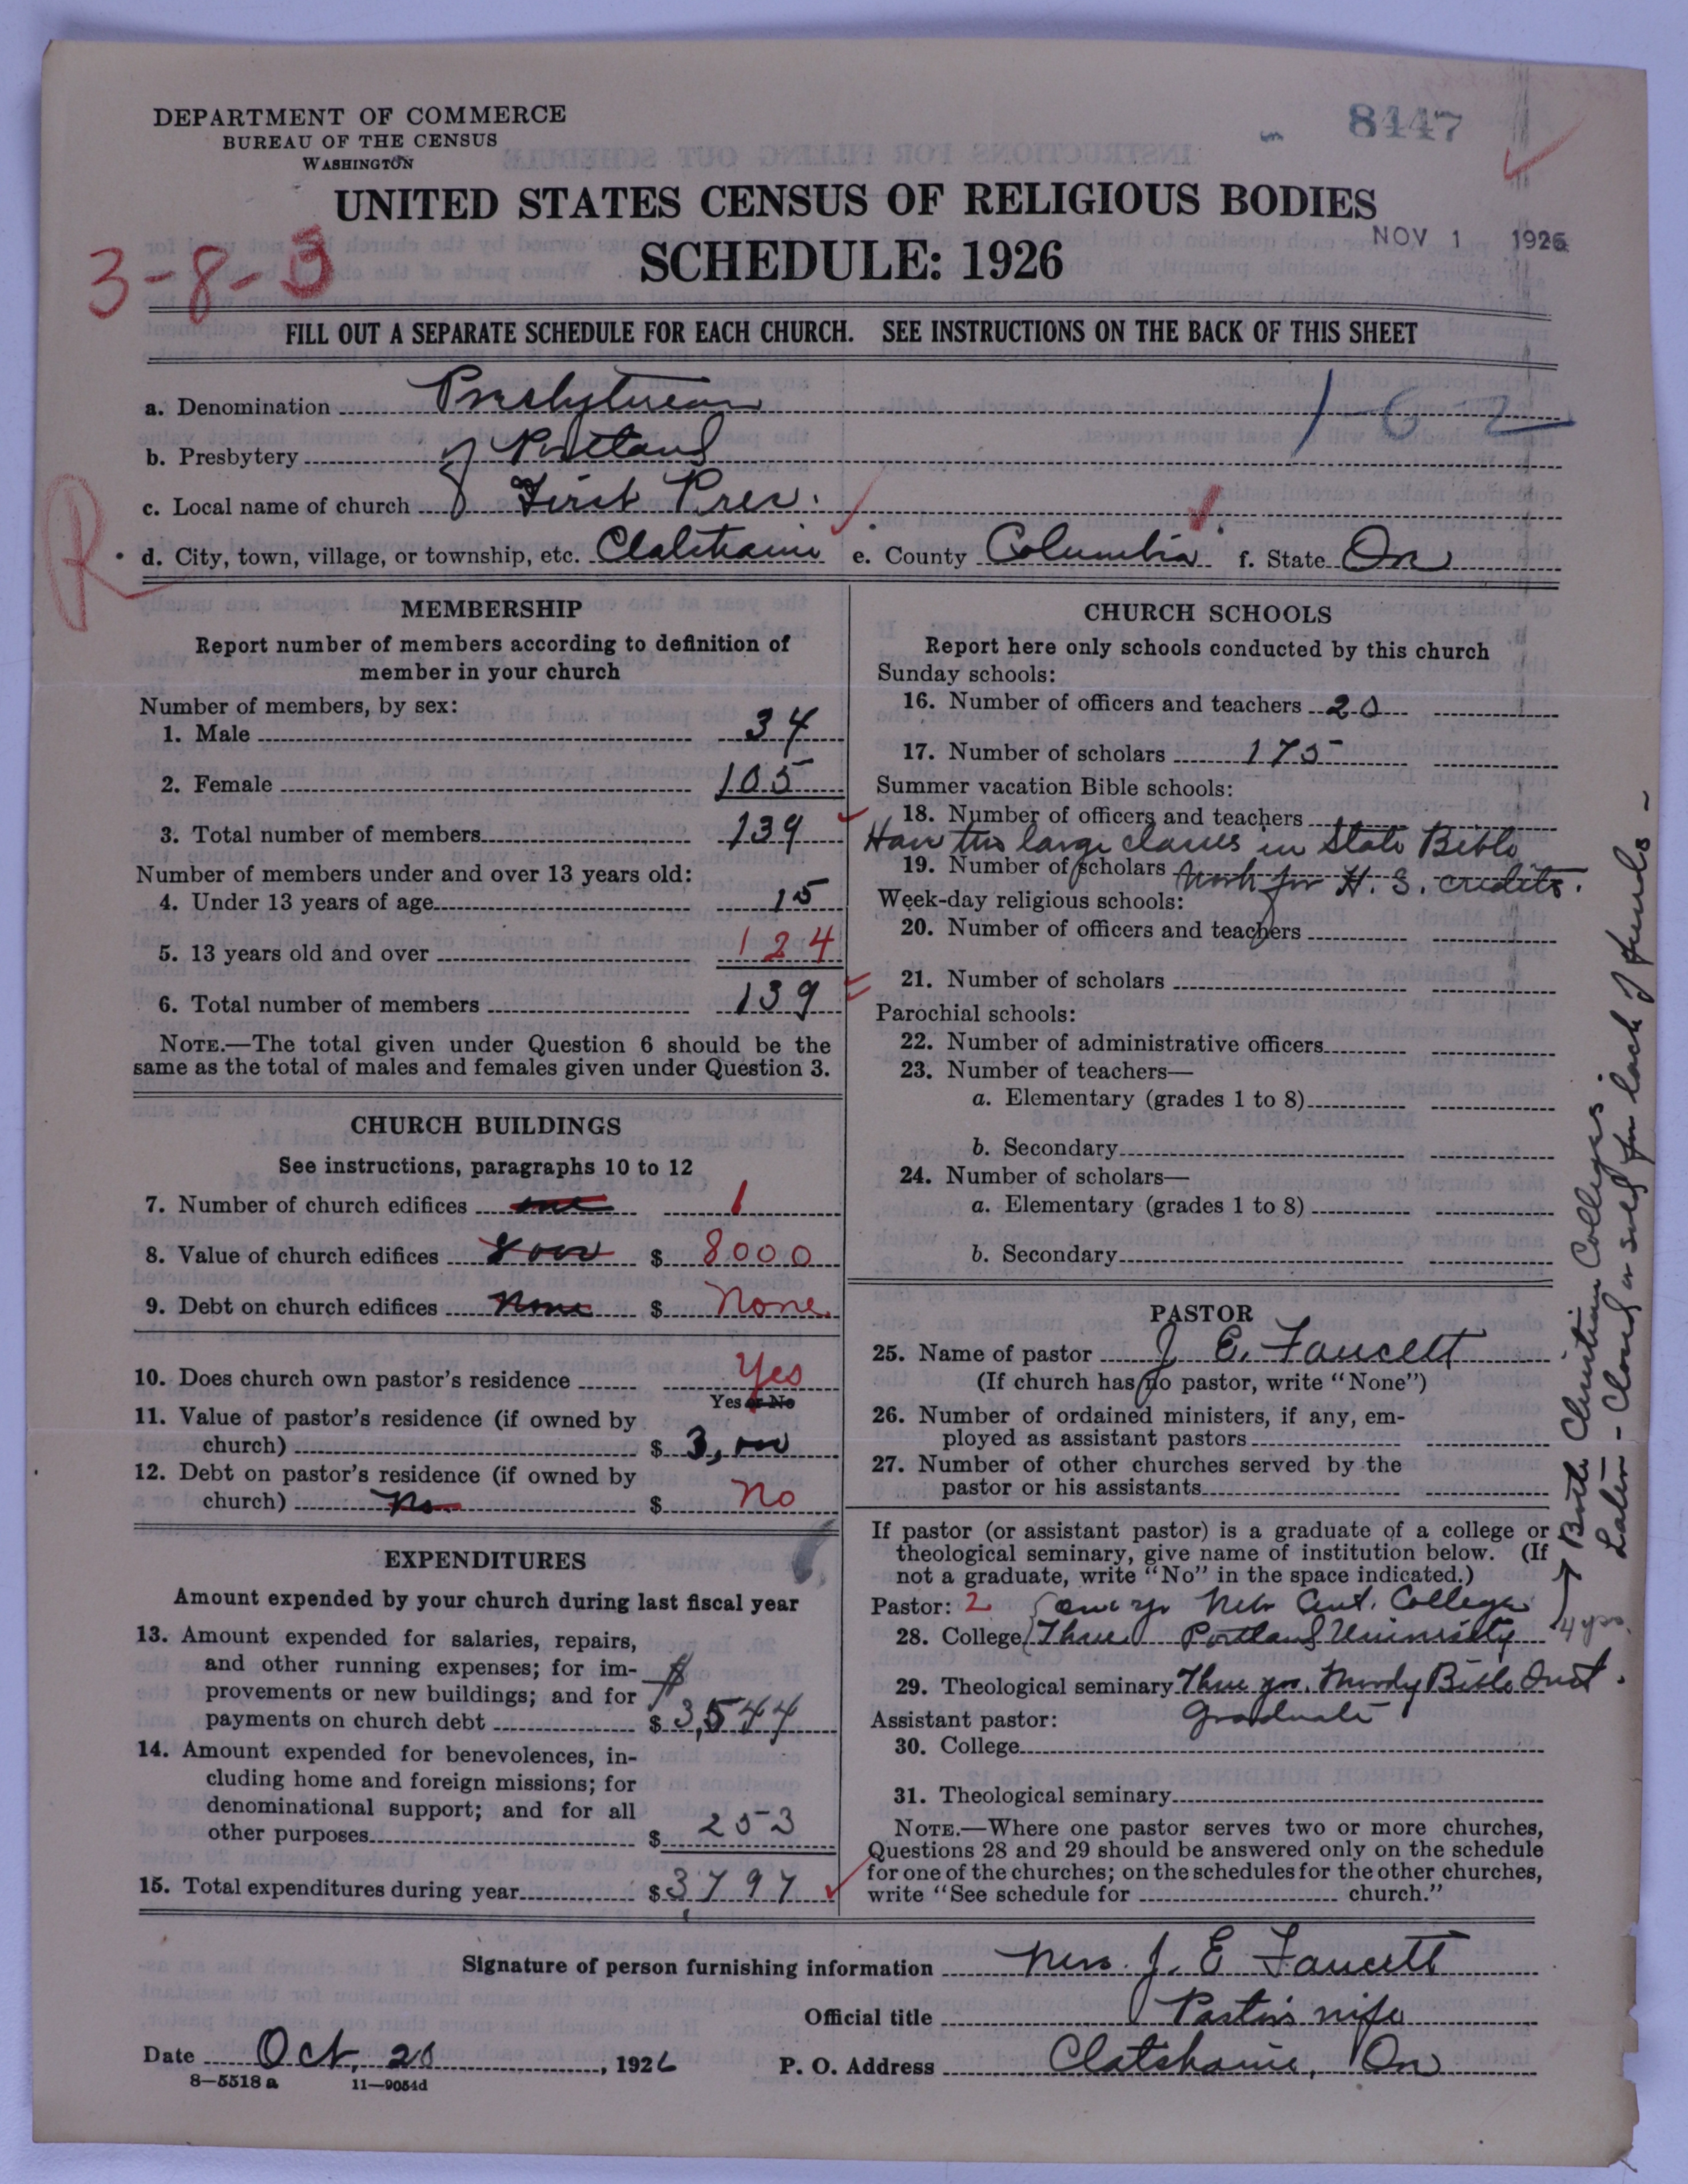 8447
DEPARTMENT OF COMMERCE
BUREAU OF THE CENSUS
WASHINGTON
UNITED STATES CENSUS OF RELIGIOUS BODIES
SCHEDULE: 1926
NOV 1 1926
3-8-3
FILL OUT A SEPARATE SCHEDULE FOR EACH CHURCH. SEE INSTRUCTIONS ON THE BACK OF THIS SHEET
a. Denomination Presbyterian 1-6-2
b. Presbytery of Portland
c. Local name of church First Pres.
R
d. City, town, village, or township, etc. Clatskanie e. County Columbia f. State Or
MEMBERSHIP
Report number of members according to definition of
member in your church
Number of members, by sex:
1. Male 34
2. Female 105
3. Total number of members 139
Number of members under and over 13 years old:
4. Under 13 years of age 15
5. 13 years old and over 124
6. Total number of members 139
NOTE.—The total given under Question 6 should be the
same as the total of males and females given under Question 3.
CHURCH BUILDINGS
See instructions, paragraphs 10 to 12
7. Number of church edifices one 1
8. Value of church edifices 8000 $ 8000
9. Debt on church edifices None $ None
10. Does church own pastor's residence Yes
Yes or No
11. Value of pastor's residence (if owned by
church) $ 3,000
12. Debt on pastor's residence (if owned by
church) No $ No
EXPENDITURES
Amount expended by your church during last fiscal year
13. Amount expended for salaries, repairs,
and other running expenses; for im-
provements or new buildings; and for
payments on church debt $ 3,544
14. Amount expended for benevolences, in-
cluding home and foreign missions; for
denominational support; and for all
other purposes $ 253
15. Total expenditures during year $ 3,797
CHURCH SCHOOLS
Report here only schools conducted by this church
Sunday schools:
16. Number of officers and teachers 20
17. Number of scholars 175
Summer vacation Bible schools:
18. Number of officers and teachers
Have two large classes in State Bible
19. Number of scholars work for H. S. credits.
Week-day religious schools:
20. Number of officers and teachers
21. Number of scholars
Parochial schools:
22. Number of administrative officers
23. Number of teachers—
a. Elementary (grades 1 to 8)
b. Secondary
24. Number of scholars—
a. Elementary (grades 1 to 8)
b. Secondary
PASTOR
25. Name of pastor J. E. Faucett
(If church has no pastor, write "None")
26. Number of ordained ministers, if any, em-
ployed as assistant pastors
27. Number of other churches served by the
pastor or his assistants
If pastor (or assistant pastor) is a graduate of a college or
theological seminary, give name of institution below. (If
not a graduate, write "No" in the space indicated.)
Pastor: 2 one yr College
28. College Three Portland University 4 yrs.
29. Theological seminary Three yrs. Moody Bible Inst.
Graduate
Assistant pastor:
30. College
31. Theological seminary
NOTE.—Where one pastor serves two or more churches,
Questions 28 and 29 should be answered only on the schedule
for one of the churches; on the schedules for the other churches,
write "See schedule for church."
Both Christian Colleges.
Later - Closed or sold for lack of funds -
Signature of person furnishing information Mrs. J. E. Faucett
Official title Pastor's wife
Date Oct. 20, 1926 P. O. Address Clatskanie, Or
8—5518 a 11—9054d